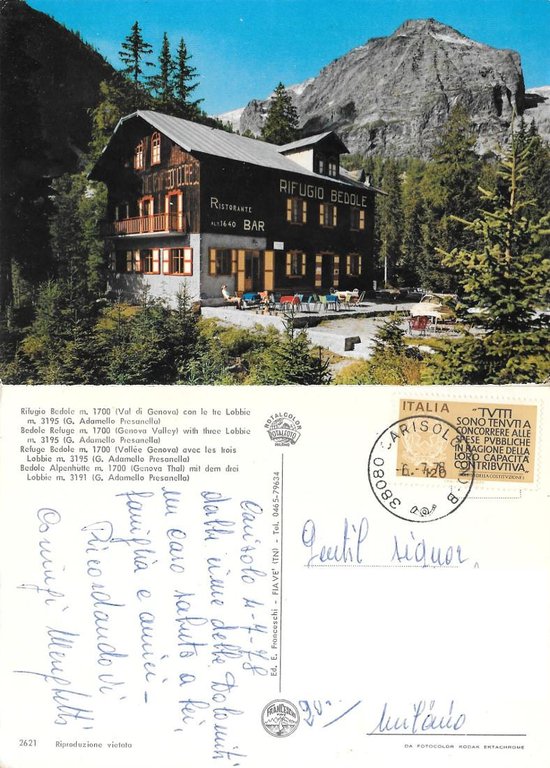 HOTEL
RIFUGIO BEDOLE
RISTORANTE
ALT. 1640 BAR
Rifugio Bedole m. 1700 (Val di Genova) con le tre Lobbie
m. 3195 (G. Adamello Presanella)
Bedole Refuge m. 1700 (Genova Valley) with three Lobbie
m. 3195 (G. Adamello Presanella)
Refuge Bedole m. 1700 (Vallée Genova) avec les trois
Lobbie m. 3195 (G. Adamello Presanella)
Bedole Alpenhütte m. 1700 (Genova Thal) mit dem drei
Lobbie m. 3191 (G. Adamello Presanella)
Carisolo 4-7-78
Dalle cime delle Dolomiti
un caro saluto a lei,
famiglia e amici -
Ricordandovi
Coniugi Menghetti
2621 Riproduzione vietata
ROTALCOLOR
ROTALFOTO
MILANO
Ed. E. Franceschi - FIAVE' (TN) - Tel. 0465-79634
FRANCESCHI
ITALIA
"TUTTI
SONO TENUTI A
CONCORRERE ALLE
SPESE PUBBLICHE
IN RAGIONE DELLA
LORO CAPACITÀ
CONTRIBUTIVA."
L. 120
38080 CARISOLO
-6.-7.78
Gentil signor,
Milano
DA FOTOCOLOR KODAK EKTACHROME